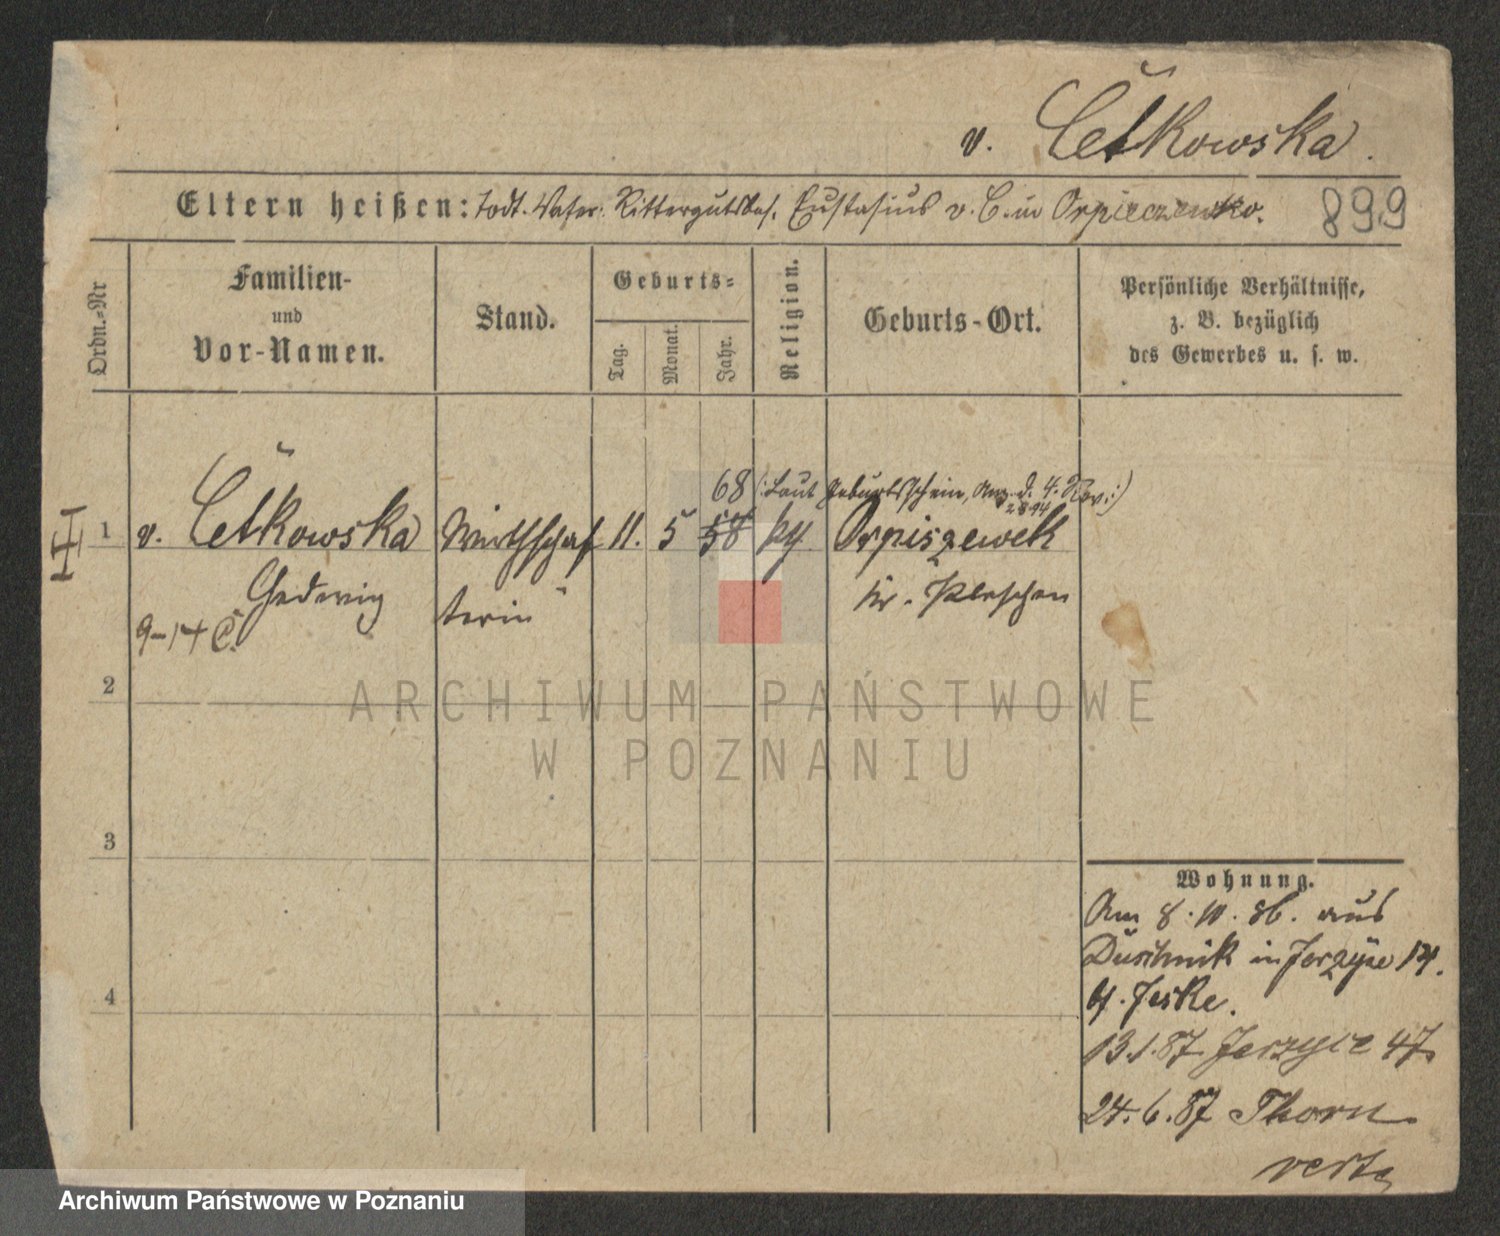 v. Cetkowska.
Eltern heißen: todt. Vater: Rittergutsbes. Eustasius v. C. in Orpieczewko.
899
Ordn.-Nr
Familien-
und
Vor-Namen.
Stand.
Geburts-
Tag.
Monat.
Jahr.
Religion.
Geburts-Ort.
Persönliche Verhältnisse,
z. B. bezüglich
des Gewerbes u. s. w.
68 (: Laut Geburtsschein, Anz. d. 4. Rev. :)
2894
1 v. Cetkowska Wirthschaf 11. 5 58 Orpiszewek
Hedwig terin Kr. Pleschen
9-14 C.
2
3
4
ARCHIWUM PAŃSTWOWE
W POZNANIU
Wohnung.
Am 8.10.86. aus
Duschnik in Jerzyce 14.
b. Jeske.
13.1.87. Jerzyce 47.
24.6.87 Thorn
verte
Archiwum Państwowe w Poznaniu